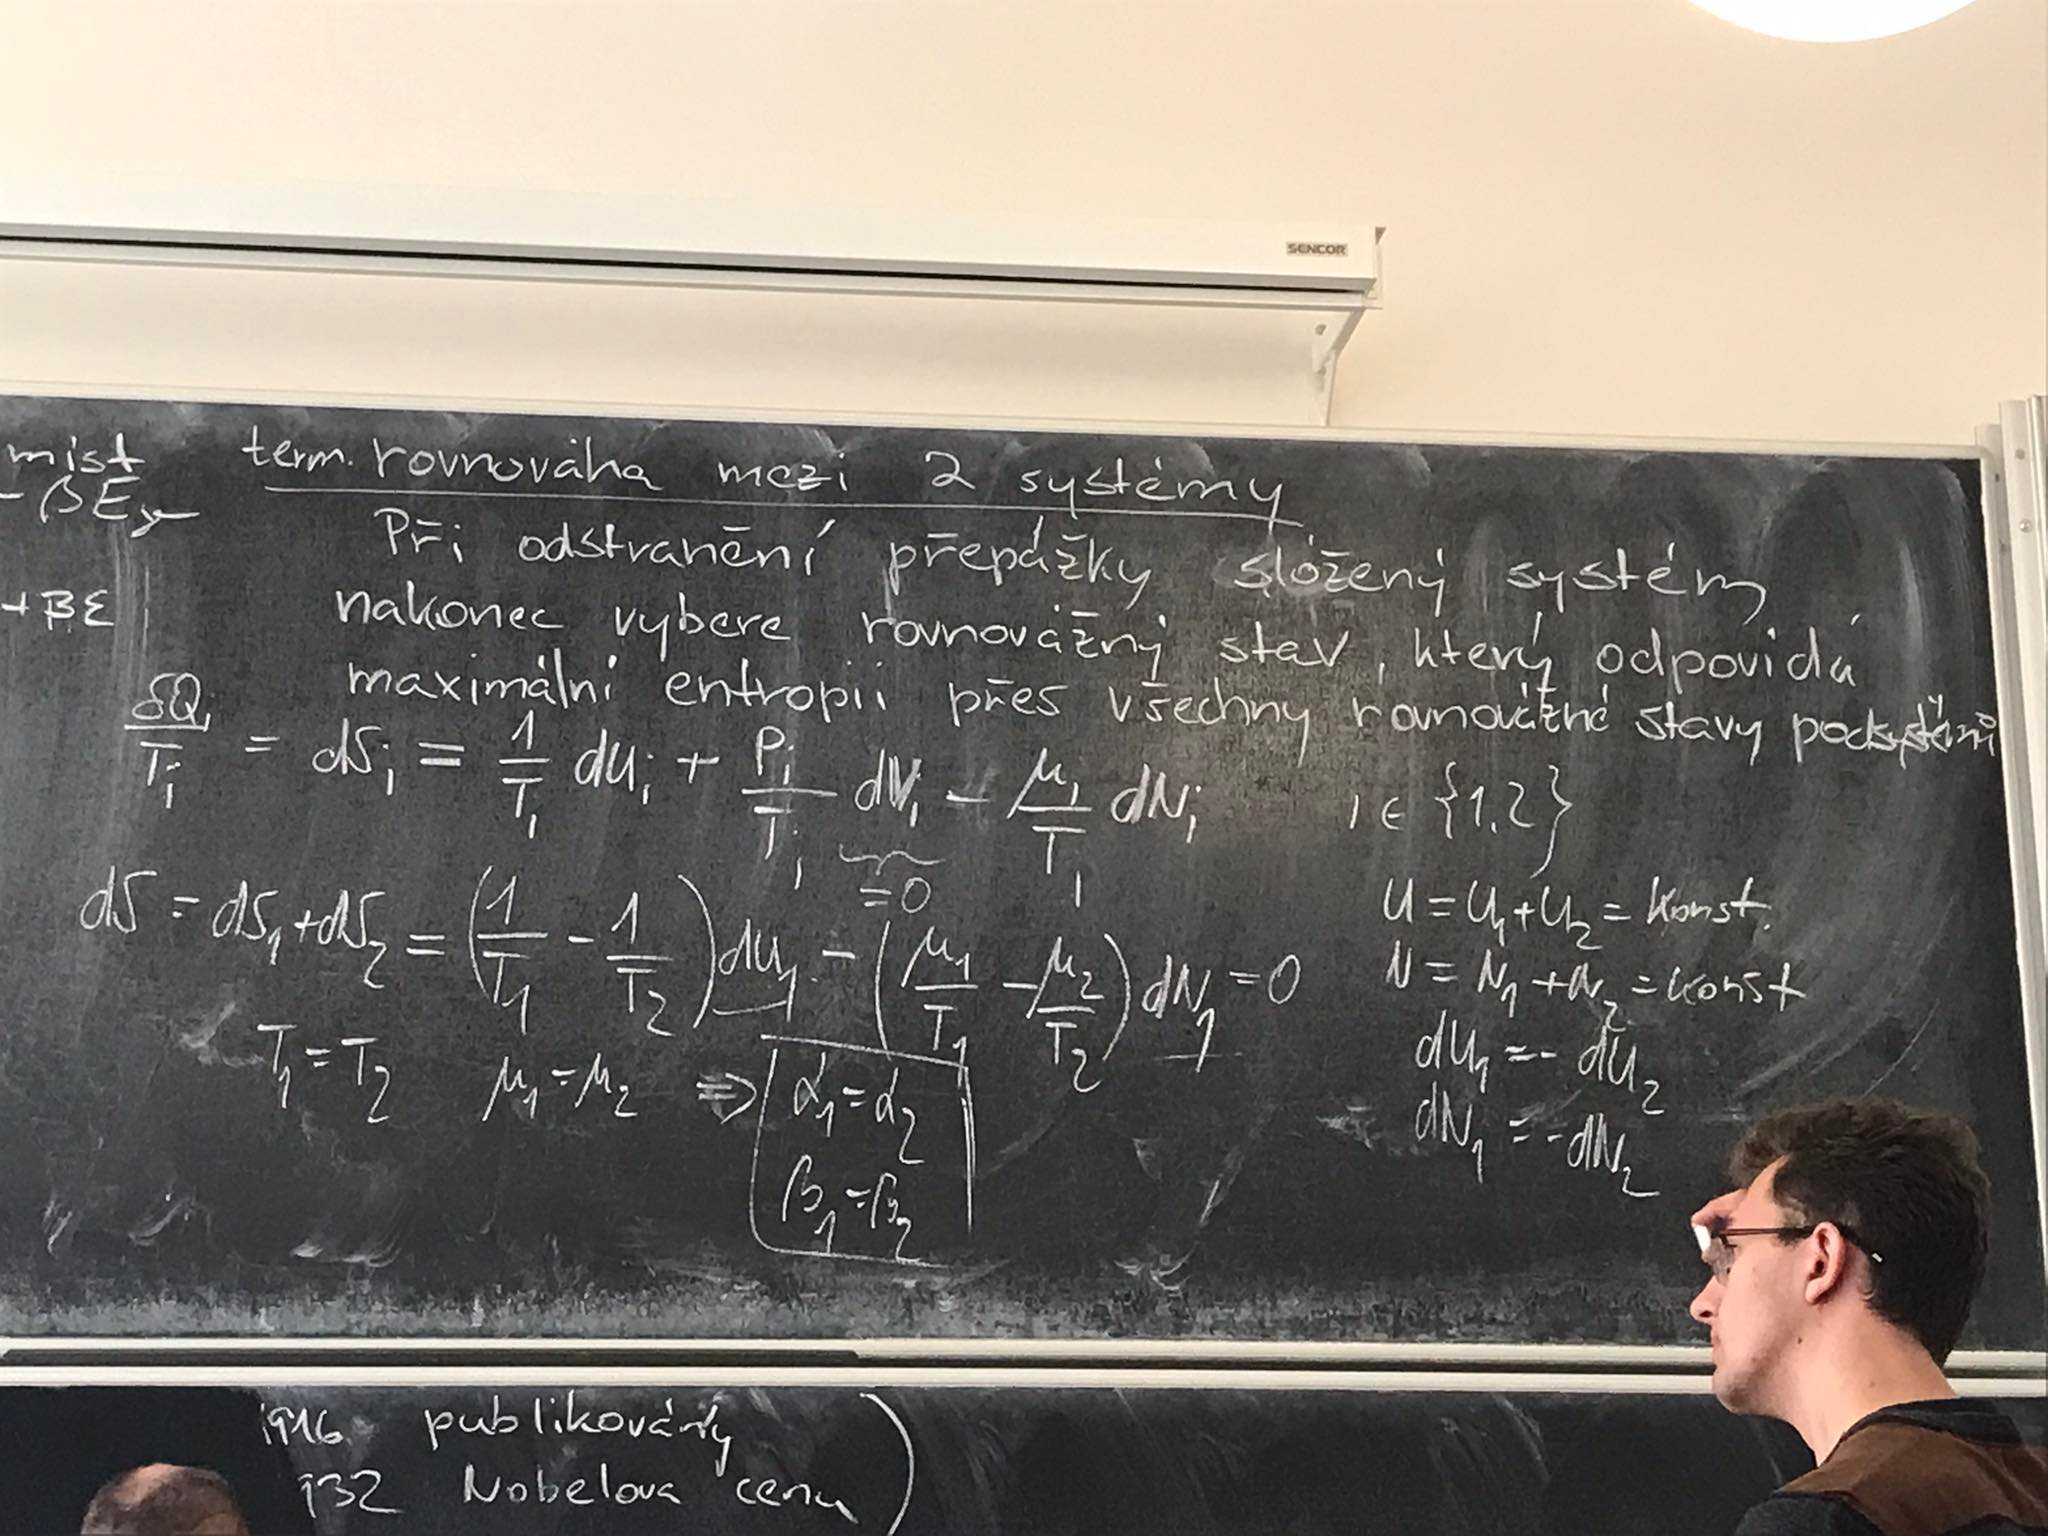 SENCOR
míst
term. rovnováha mezi 2 systémy
-βE
Při odstranění přepážky složený systém
+βε
nakonec vybere rovnovážný stav, který odpovídá
maximální entropii přes všechny rovnovážné stavy podsystémů
δQᵢ/Tᵢ = dSᵢ = 1/Tᵢ dUᵢ + Pᵢ/Tᵢ dVᵢ - μᵢ/Tᵢ dNᵢ i ∈ {1,2}
=0
dS = dS₁+dS₂ = (1/T₁ - 1/T₂) dU₁ - (μ₁/T₁ - μ₂/T₂) dN₁ = 0
U = U₁+U₂ = konst.
N = N₁+N₂ = konst
dU₁ = - dU₂
dN₁ = - dN₂
T₁ = T₂ μ₁ = μ₂ ⇒ α₁ = α₂
β₁ = β₂
publikovány )
932 Nobelova cena